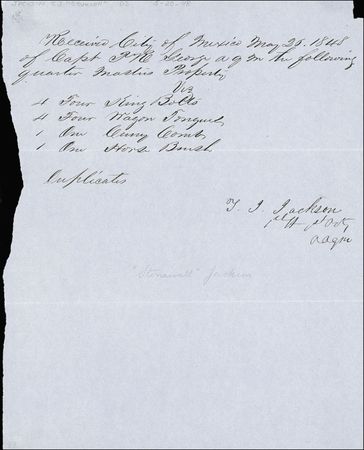 Received City of Mexico May 25. 1848
of Capt P. H. George a q m the following
quarter Masters Property,
Viz
4 Four King Bolts
4 Four Wagon Tongues
1 One Curry Comb
1 One Horse Brush
Duplicates
T. J. Jackson
1st Lt 1st Arty
a a q m
"Stonewall" Jackson